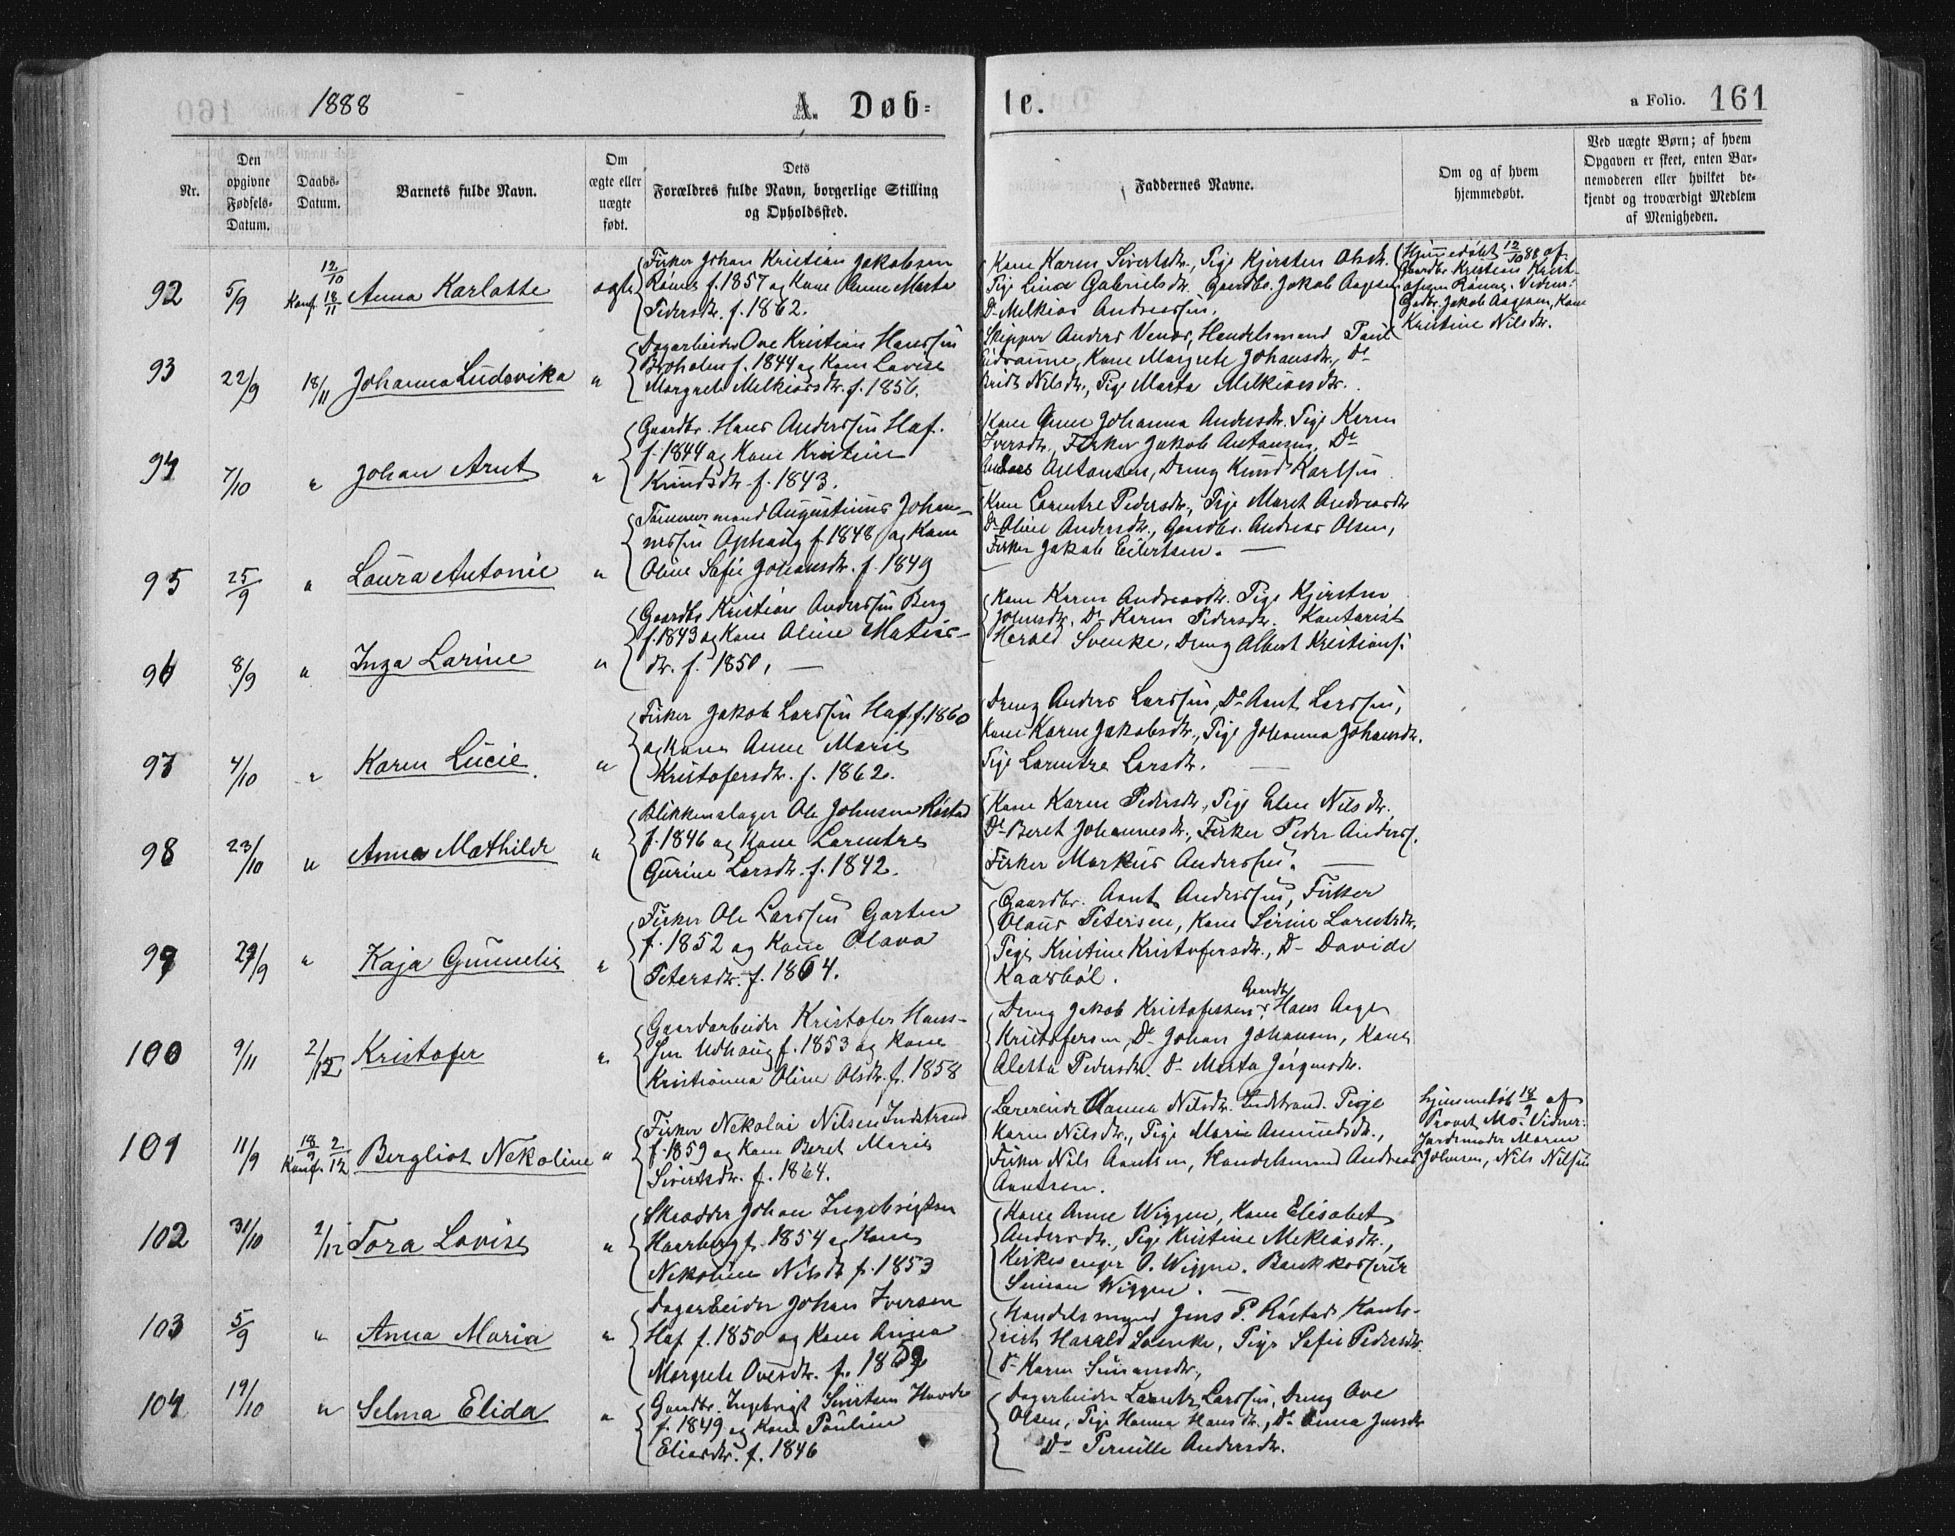 1888
A. Døb-
te.
a Folio. 161
Nr.
Den opgivne Fødsels-Datum.
Daabs-Datum.
Barnets fulde Navn.
Om ægte eller uægte født.
Dets Forældres fulde Navn, borgerlige Stilling og Opholdssted.
Faddernes Navne.
Om og af hvem hjemmedøbt.
Ved uægte Børn; af hvem Opgaven er skeet, enten Barnemoderen eller hvilket bekjendt og troværdigt Medlem af Menigheden.
92 5/9 12/10 Konf. 18/11 Anna Karlotte ægte
Fisker Johan Kristian Jakobsen
f. 1857 og Kone Anne Marta
Pedersdr. f. 1862.
Kone Karen Sivertsdr., Pige Kjersten Olsdr.
Pige Lina Gabrielsdr. Gaardbr. Jakob Aagesen
Do Melkior Andreassen.
Hjemmedøbt 12/10 88 af
Gaardbr. Kristian Krist-
ofersen Vidner:
Gadbr. Jakob Aagesen, Kone
Kristine Nilsdr.
93 22/9 18/11 Johanna Ludovika "
Dagarbeider Ove Kristian Hanssen
f. 1844 og Kone Lovise
Margrete Melkiorsdr. f. 1856.
Skipper Anders Handelsmand Paul
Kone Margrete Johansdr., Do
Nilsdr., Pige Marta Melkiorsdr.
94 7/10 " Johan Arnt "
Gaardbr. Hans Anderssen Haf.
f. 1844 og Kone Kristine
Knudsdr. f. 1843.
Kone Anne Johanna Andersdr. Pige Karen
Iversdr., Fisker Jakob Antonsen, Do
Anders Antonsen, Dreng Knud Karlsen
95 25/9 " Laura Antonie "
Tømmermand Augustinus Johan-
nessen Ophaug f. 1848 og Kone
Oline Sofie Johansdr. f. 1849
Kone Larentre Pedersdr., Pige Maret Andreasdr
Do Oline Andersdr., Gaardbr. Andreas Olsen,
Fisker Jakob Eilertsen. —
96 8/9 " Inga Larine "
Gaardbr. Kristian Anderssen Berg
f. 1843 og Kone Oline Matias-
dr. f. 1850. —
Kone Karen Andreasdr. Pige Kjersten
Johnsdr. Do Karen Pedersdr. Kontorist
Herald Svenke, Dreng Albert Kristians.
97 4/10 " Karen Lucie. "
Fisker Jakob Larssen Haf f. 1860
og Kone Anne Marie
Kristofersdr. f. 1862.
Dreng Anders Larssen, Do Aant Larssen,
Kone Karen Jakobsdr., Pige Johanna Johansdr.
Pige Larentze Larsdr. —
98 23/10 " Anna Mathilde "
Blikkenslager Ole Johnsen Røstad
f. 1846 og Kone Larentze
Gurine Larsdr. f. 1842.
Kone Karen Pedersdr., Pige Elen Nilsdr.
Do Beret Johannesdr., Fisker Peder Anders.
Fisker Markus Anderssen. —
99 29/9 " Kaja Gunnelie "
Fisker Ole Larssen Garten
f. 1852 og Kone Olava
Petersdr. f. 1864.
Gaardbr. Aant Anderssen, Fisker
Olaus Petersen, Kone Serine Larentsdr.
Pige Kristine Kristofersdr., Do Davide
Kaarbøl.
100 9/11 2/12 Kristofer "
Gaardarbeider Kristofer Hans-
sen Udhaug f. 1853 og Kone
Kristianna Oline Olsdr. f. 1858
Dreng Jakob Kristofersen, Gaardbr. Hans Aage
Kristofersen, Do Johan Johansen, Kone
Aletta Pedersdr. Do Marta Jørgensdr.
101 11/9 18/9 Konf. 2/12 Bergliot Nekoline "
Fisker Nekolai Nilsen Indstrand
f. 1859 og Kone Beret Marie
Sivertsdr. f. 1864.
Lærerinde Hanna Nilsdr. Indstrand. Pige
Karen Nilsdr., Pige Marie Asmundsdr.,
Fisker Nils Aantsen, Handelsmand Andreas
Aantsen.
hjemmedøbt 18/9 af
Provst Mo. Vidner:
Jordemoder Maren
Johnsen, Nils Nilssen
102 31/10 2/12 Tora Lovise "
Skrædder Johan Ingebrigtsen
f. 1854 og Kone
Nekoline Nilsdr f. 1853
Kone Anne Wiggen, Kone Elisabet
Andersdr., Pige Kristine Mekiorsdr.,
Kirkesanger O. Wiggen. Bankkasserer
Simon Wiggen. —
103 5/9 " Anna Maria "
Dagarbeider Johan Iversen
Haf f. 1850 og Kone Anna
Margrete Ovesdr. f. 1859
Handelsmand Jens P. Røstad, Konto-
rist Harald Svenke, Pige Sofie Pedersdr.
Do Karen Simonsdr.,
104 19/10 " Selma Elida "
Gaardbr. Ingebrigt Sivertsen
f. 1849 og Kone Pauline
Eliasdr. f. 1846
Dagarbeider Larents Larssen, Dreng Ove
Olsen, Pige Hanna Hansdr., Do Anna Jensdr
Do Pernille Andersdr.